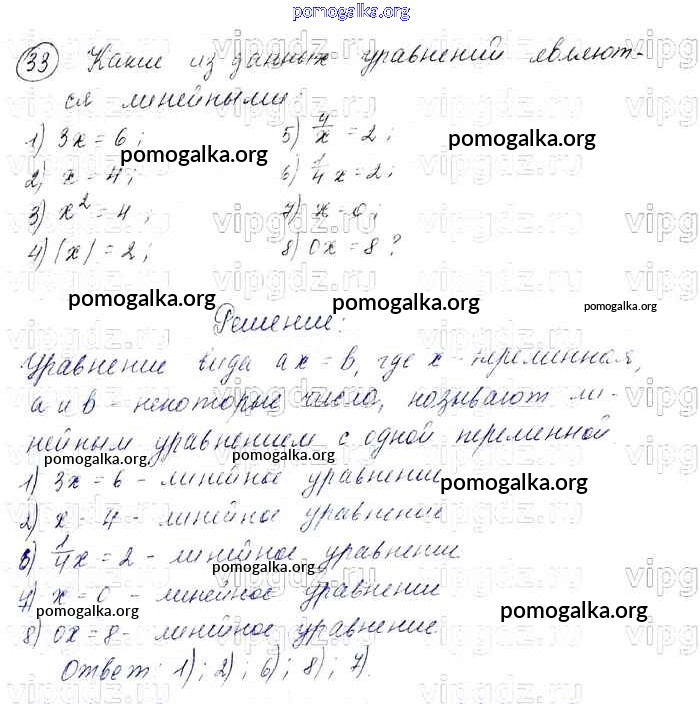 pomogalka.org
33 Какие из данных уравнений являют-
ся линейными:
1) 3x = 6;
5) 4/x = 2;
pomogalka.org
pomogalka.org
2) x = 4;
6) 1/4 x = 2;
3) x² = 4;
7) x = 0;
4) |x| = 2;
8) 0x = 8?
pomogalka.org
pomogalka.org
pomogalka.org
Решение:
Уравнение вида ax = b, где x - переменная,
a и b - некоторые числа, называют ли-
нейным уравнением с одной переменной
pomogalka.org
pomogalka.org
1) 3x = 6 - линейное уравнение
pomogalka.org
2) x = 4 - линейное уравнение
6) 1/4 x = 2 - линейное уравнение
pomogalka.org
7) x = 0 - линейное уравнение
pomogalka.org
pomogalka.org
8) 0x = 8 - линейное уравнение
Ответ: 1); 2); 6); 8); 7).
vipgdz.ru